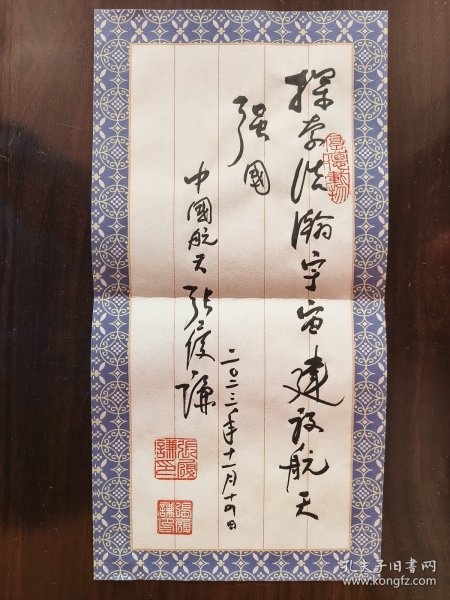 探索浩瀚宇宙建设航天
强國
中國航天 张履谦
二〇二三年十一月十四日
張履謙印
張履謙印
孔夫子旧书网
www.kongfz.com